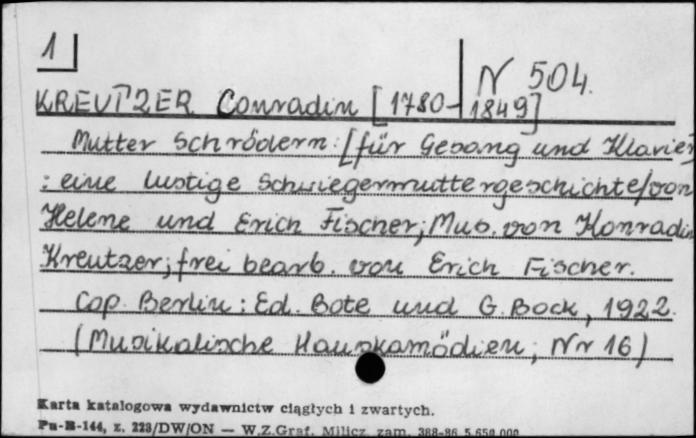 1
N 504.
KREUTZER Conradin [1780-1849]
Mutter Schrödern: [für Gesang und Klavier]
: eine lustige Schwiegermuttergeschichte/von
Helene und Erich Fischer; Mus. von Konradin
Kreutzer; frei bearb. von Erich Fischer.
Cop. Berlin: Ed. Bote und G. Bock, 1922.
(Musikalische Hauskomödien; Nr 16)
Karta katalogowa wydawnictw ciągłych i zwartych.
Pu-B-144, z. 223/DW/ON — W.Z.Graf. Milicz zam. 388-86 5.650.000